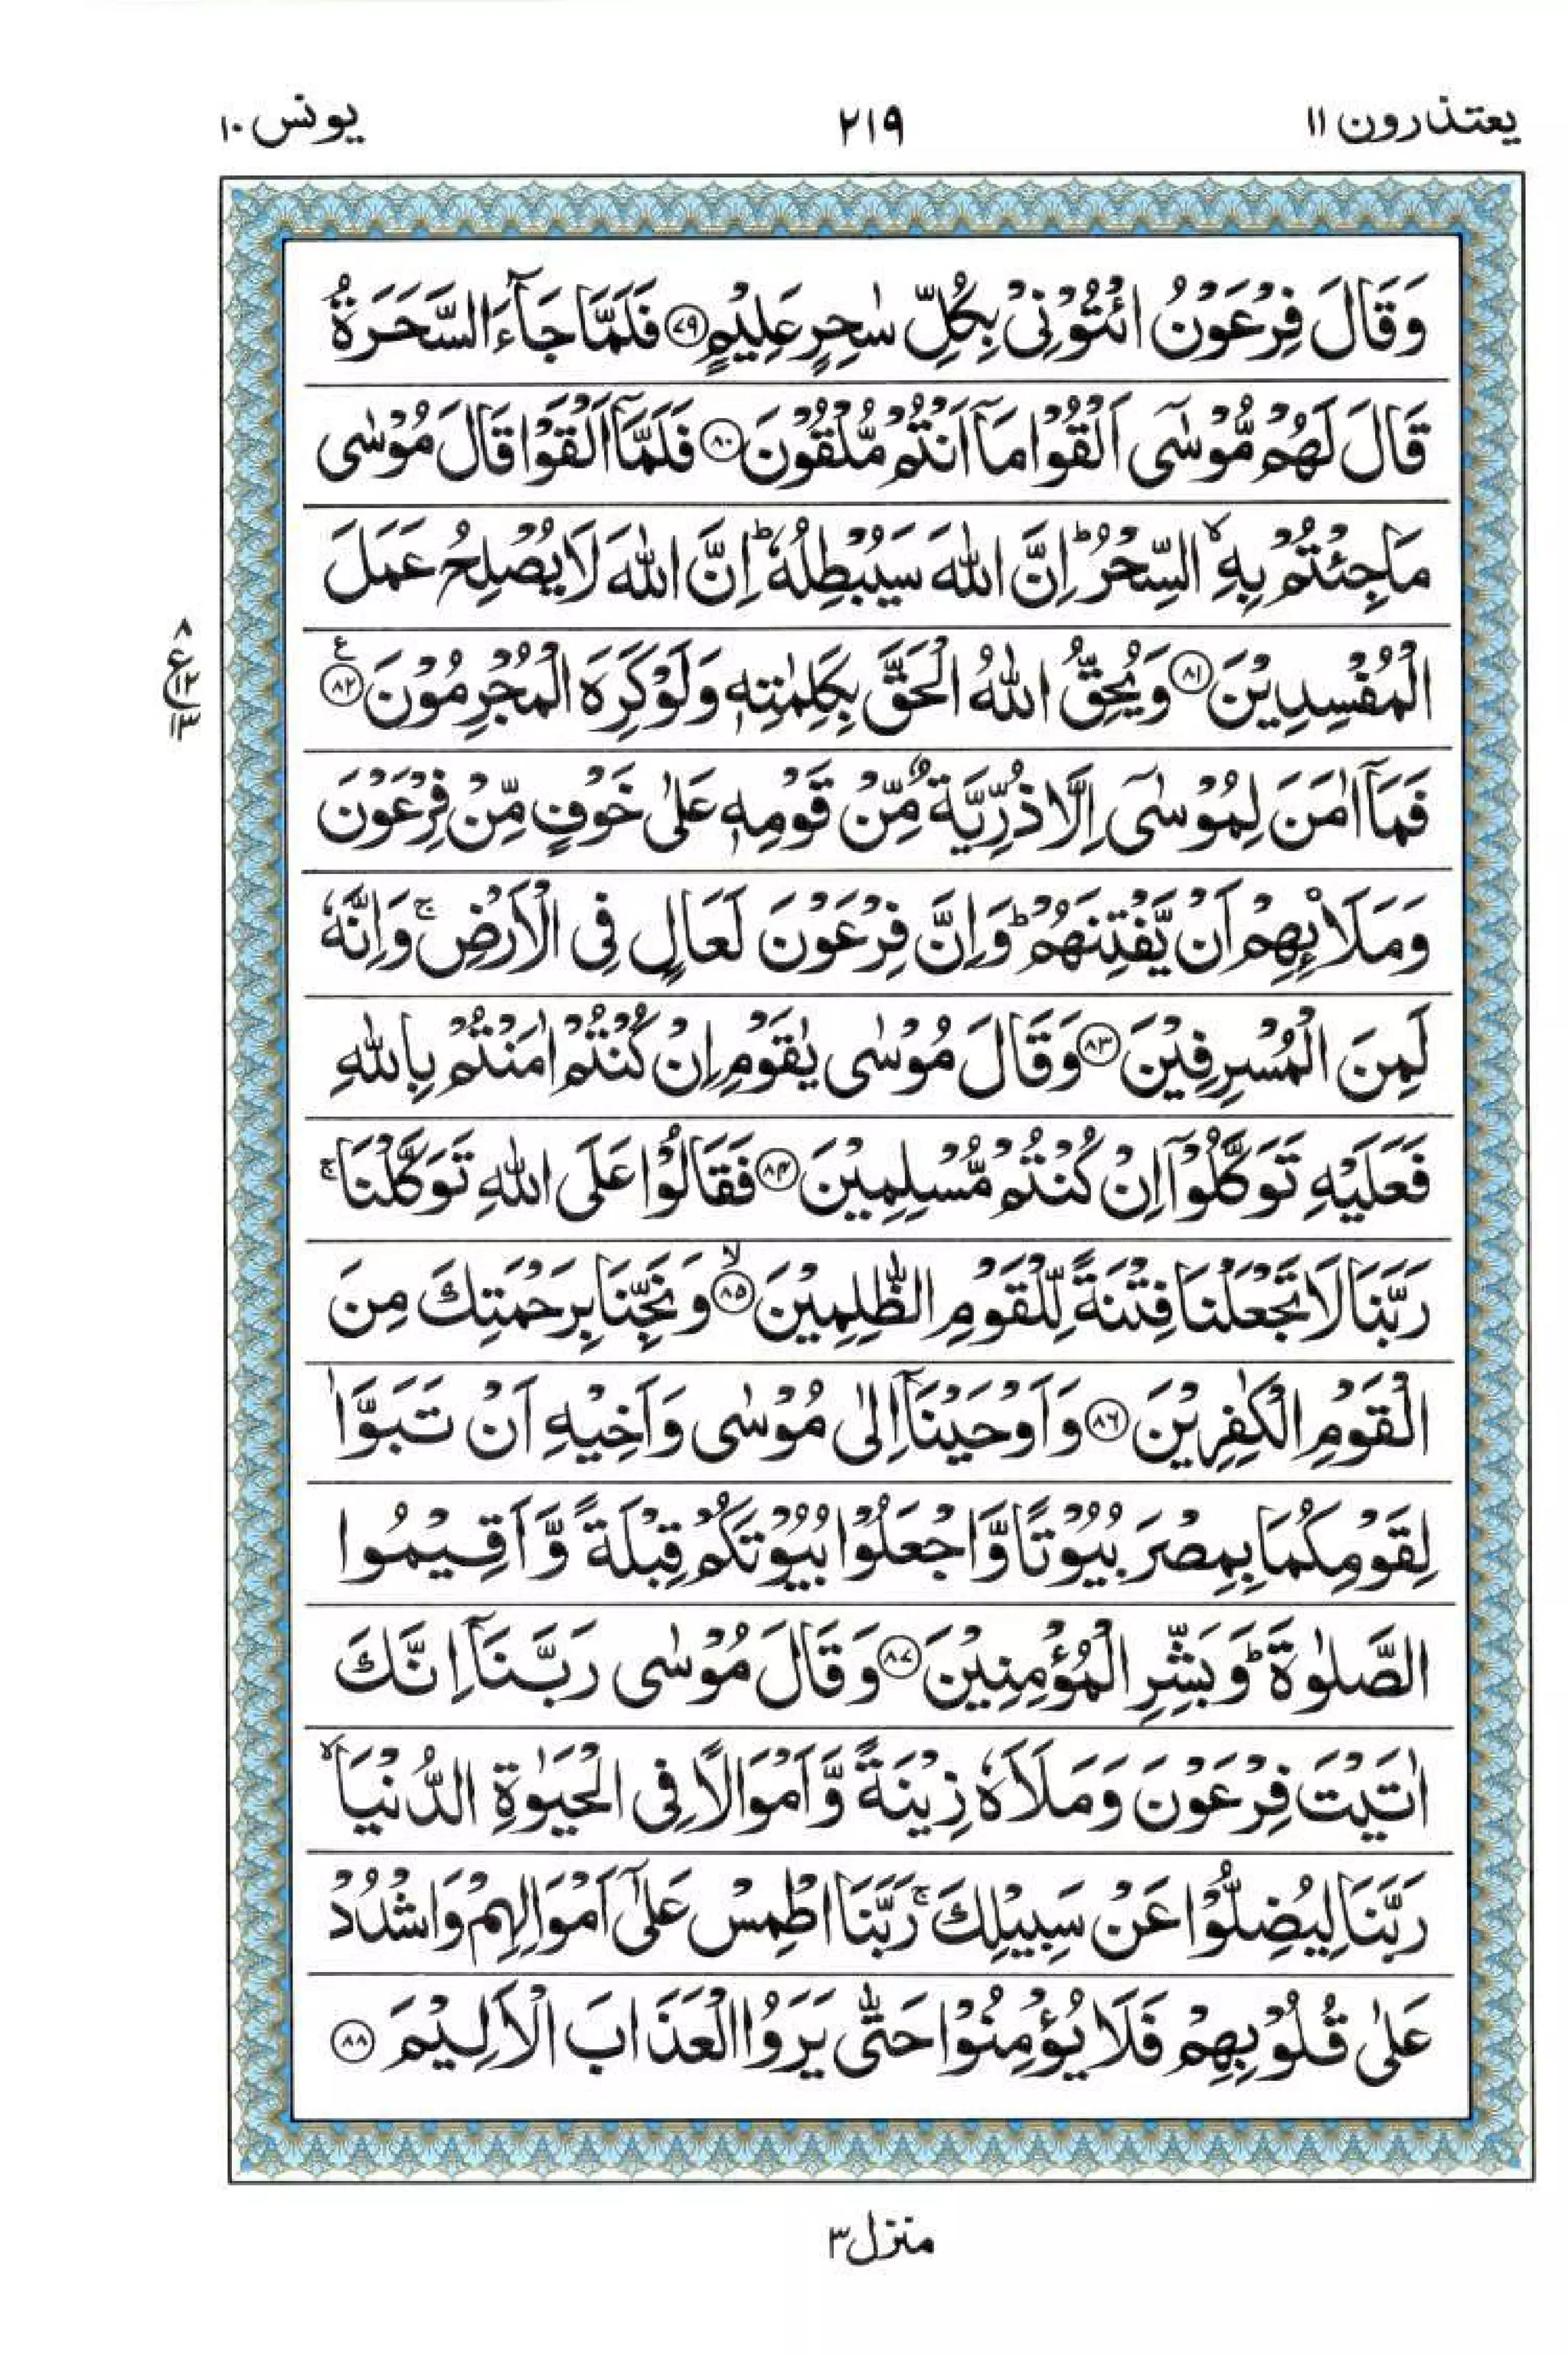 یعتذرون ۱۱
۲۱۹
یونس ۱۰
وَقَالَ فِرْعَوْنُ ائْتُوْنِیْ بِكُلِّ سٰحِرٍ عَلِیْمٍ ﴿۷۹﴾ فَلَمَّا جَآءَ السَّحَرَةُ
قَالَ لَهُمْ مُّوْسٰۤی اَلْقُوْا مَاۤ اَنْتُمْ مُّلْقُوْنَ ﴿۸۰﴾ فَلَمَّاۤ اَلْقَوْا قَالَ مُوْسٰی
مَا جِئْتُمْ بِهِ ۙ السِّحْرُ ؕ اِنَّ اللّٰهَ سَیُبْطِلُهٗ ؕ اِنَّ اللّٰهَ لَا یُصْلِحُ عَمَلَ
الْمُفْسِدِیْنَ ﴿۸۱﴾ وَیُحِقُّ اللّٰهُ الْحَقَّ بِكَلِمٰتِهٖ وَلَوْ كَرِهَ الْمُجْرِمُوْنَ ﴿۸۲﴾ ع
۸
ع ۱۲
۱۳
فَمَاۤ اٰمَنَ لِمُوْسٰۤی اِلَّا ذُرِّیَّةٌ مِّنْ قَوْمِهٖ عَلٰی خَوْفٍ مِّنْ فِرْعَوْنَ
وَمَلَا۠ئِهِمْ اَنْ یَّفْتِنَهُمْ ؕ وَاِنَّ فِرْعَوْنَ لَعَالٍ فِی الْاَرْضِ ۚ وَاِنَّهٗ
لَمِنَ الْمُسْرِفِیْنَ ﴿۸۳﴾ وَقَالَ مُوْسٰی یٰقَوْمِ اِنْ كُنْتُمْ اٰمَنْتُمْ بِاللّٰهِ
فَعَلَیْهِ تَوَكَّلُوْۤا اِنْ كُنْتُمْ مُّسْلِمِیْنَ ﴿۸۴﴾ فَقَالُوْا عَلَی اللّٰهِ تَوَكَّلْنَا ۚ
رَبَّنَا لَا تَجْعَلْنَا فِتْنَةً لِّلْقَوْمِ الظّٰلِمِیْنَ ﴿۸۵﴾ ۙ وَنَجِّنَا بِرَحْمَتِكَ مِنَ
الْقَوْمِ الْكٰفِرِیْنَ ﴿۸۶﴾ وَاَوْحَیْنَاۤ اِلٰی مُوْسٰی وَاَخِیْهِ اَنْ تَبَوَّاٰ
لِقَوْمِكُمَا بِمِصْرَ بُیُوْتًا وَّاجْعَلُوْا بُیُوْتَكُمْ قِبْلَةً وَّاَقِیْمُوا
الصَّلٰوةَ ؕ وَبَشِّرِ الْمُؤْمِنِیْنَ ﴿۸۷﴾ وَقَالَ مُوْسٰی رَبَّنَاۤ اِنَّكَ
اٰتَیْتَ فِرْعَوْنَ وَمَلَاَهٗ زِیْنَةً وَّاَمْوَالًا فِی الْحَیٰوةِ الدُّنْیَا ۙ
رَبَّنَا لِیُضِلُّوْا عَنْ سَبِیْلِكَ ۚ رَبَّنَا اطْمِسْ عَلٰۤی اَمْوَالِهِمْ وَاشْدُدْ
عَلٰی قُلُوْبِهِمْ فَلَا یُؤْمِنُوْا حَتّٰی یَرَوُا الْعَذَابَ الْاَلِیْمَ ﴿۸۸﴾
منزل ۳